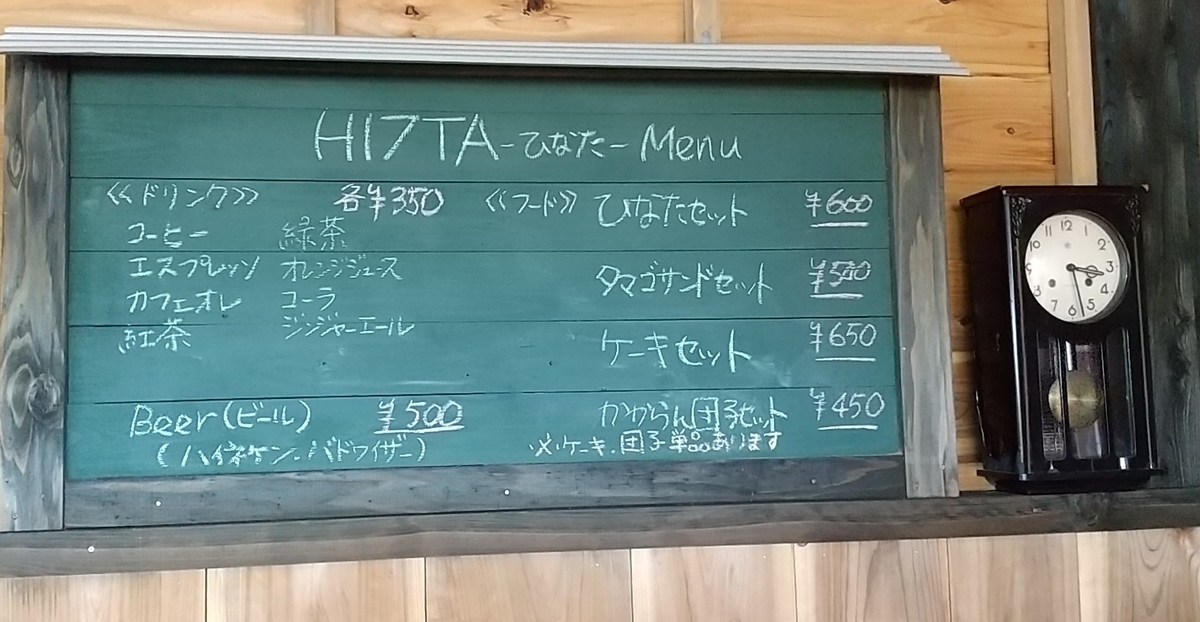 H17TA-ひなた- Menu
《ドリンク》 各¥350
コーヒー
エスプレッソ
カフェオレ
紅茶
緑茶
オレンジジュース
コーラ
ジンジャーエール
Beer(ビール) ¥500
(ハイネケン.バドワイザー)
《フード》 ひなたセット ¥600
タマゴサンドセット
ケーキセット ¥650
かからん団子セット ¥450
※ケーキ.団子単品あります
12
1
2
3
4
5
6
7
8
9
10
11